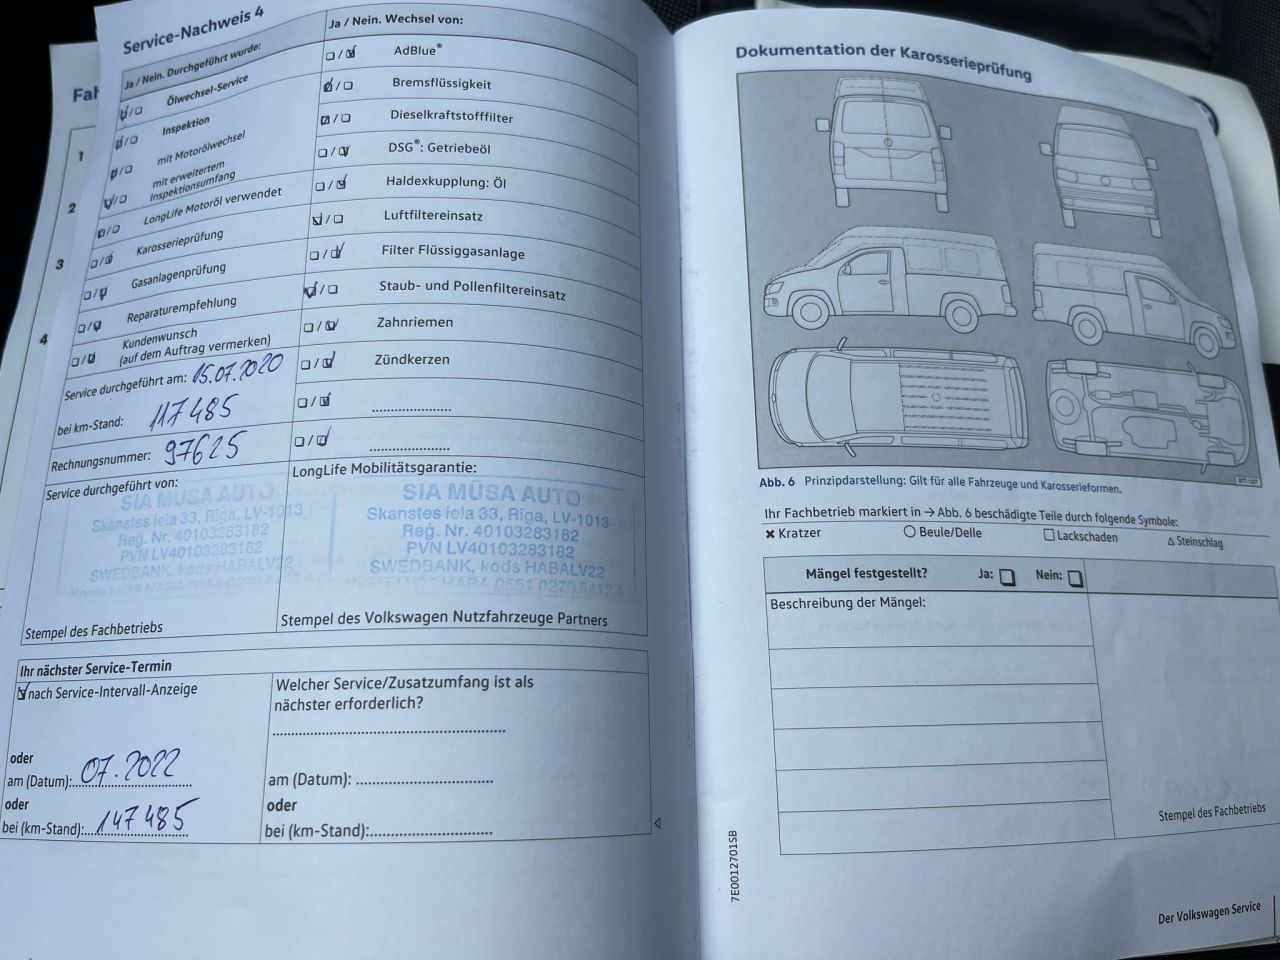 Service-Nachweis 4
Ja / Nein. Durchgeführt wurde:
Ölwechsel-Service
Inspektion
mit Motorölwechsel
mit erweitertem
Inspektionsumfang
LongLife Motoröl verwendet
Karosserieprüfung
Gasanlagenprüfung
Reparaturempfehlung
Kundenwunsch
(auf dem Auftrag vermerken)
Service durchgeführt am: 15.07.2020
bei km-Stand: 117 485
Rechnungsnummer: 97625
Service durchgeführt von:
SIA MŪSA AUTO
Skanstes iela 33, Rīga, LV-1013
Reģ. Nr. 40103283182
PVN LV40103283182
SWEDBANK, kods HABALV22
Stempel des Fachbetriebs
Ja / Nein. Wechsel von:
AdBlue®
Bremsflüssigkeit
Dieselkraftstofffilter
DSG®: Getriebeöl
Haldexkupplung: Öl
Luftfiltereinsatz
Filter Flüssiggasanlage
Staub- und Pollenfiltereinsatz
Zahnriemen
Zündkerzen
LongLife Mobilitätsgarantie:
SIA MŪSA AUTO
Skanstes iela 33, Rīga, LV-1013
Reģ. Nr. 40103283182
PVN LV40103283182
SWEDBANK, kods HABALV22
Stempel des Volkswagen Nutzfahrzeuge Partners
Ihr nächster Service-Termin
nach Service-Intervall-Anzeige
oder
am (Datum): 07.2022
oder
bei (km-Stand): 147 485
Welcher Service/Zusatzumfang ist als
nächster erforderlich?
am (Datum):
oder
bei (km-Stand):
Fah
1
2
3
4
Dokumentation der Karosserieprüfung
Abb. 6 Prinzipdarstellung: Gilt für alle Fahrzeuge und Karosserieformen.
Ihr Fachbetrieb markiert in → Abb. 6 beschädigte Teile durch folgende Symbole:
Kratzer Beule/Delle Lackschaden Steinschlag
Mängel festgestellt? Ja: Nein:
Beschreibung der Mängel:
Stempel des Fachbetriebs
7E0012701SB
Der Volkswagen Service